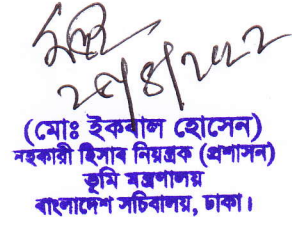 ২৭/৪/২০২২
(মোঃ ইকবাল হোসেন)
সহকারী হিসাব নিয়ন্ত্রক (প্রশাসন)
ভূমি মন্ত্রণালয়
বাংলাদেশ সচিবালয়, ঢাকা।